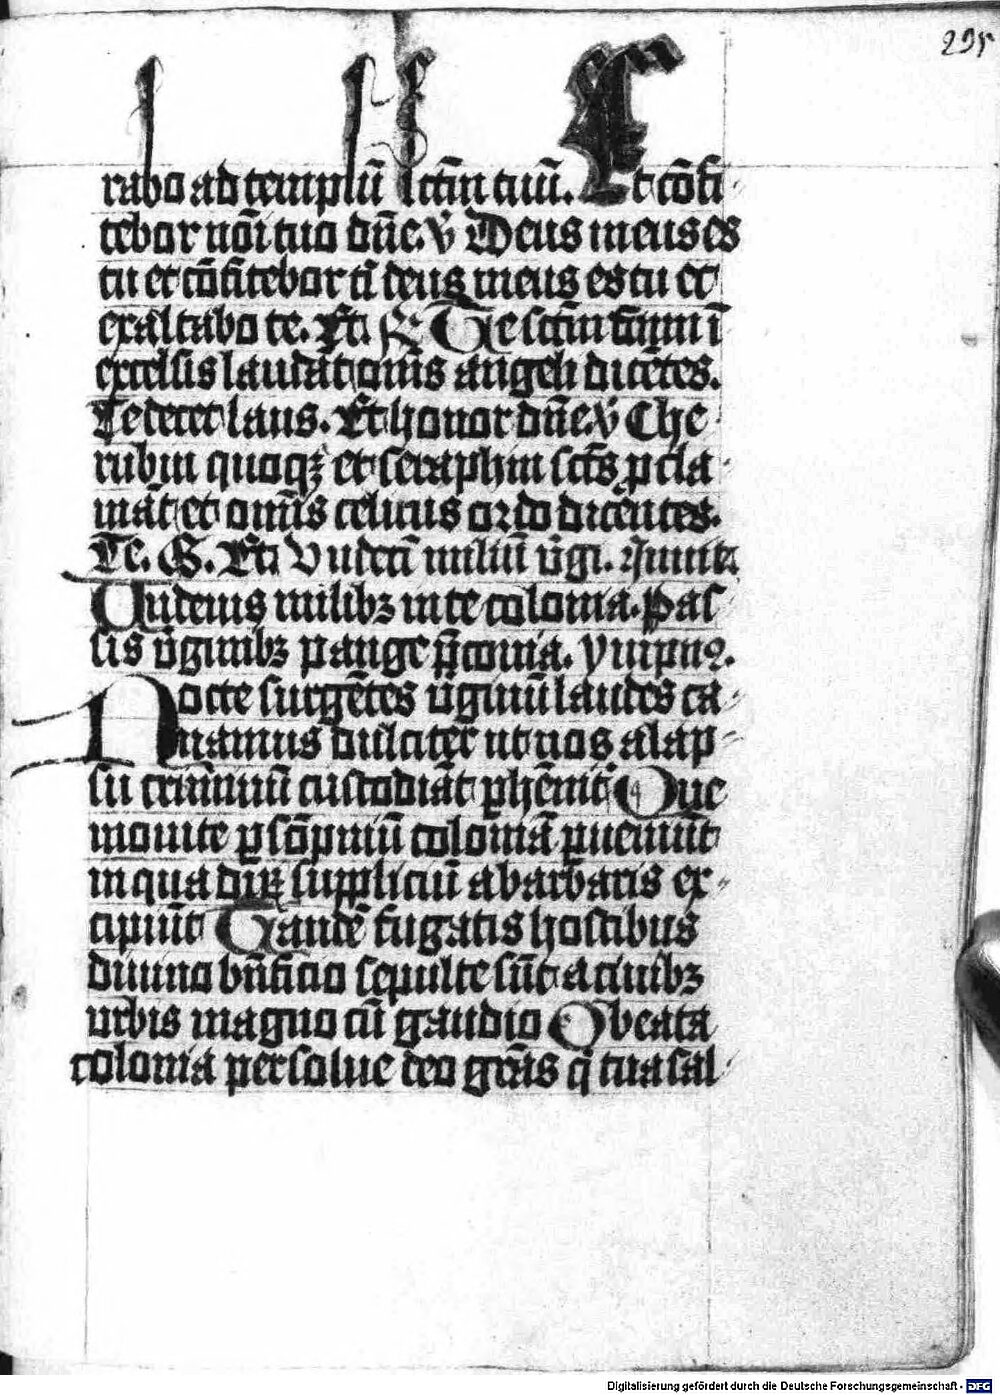 295
rabo ad templū sctm̄ tuū. Et cōfi-
tebor nōi tuo dn̄e. v̄ Deus meus es
tu et cōfitebor t̄ deus meus es tu et
exaltabo te. Te sctm̄ dn̄m ī
excelsis laudāt om̄s angeli dicētes.
Te decet laus. Et honor dn̄e. v̄ Che
rubin quoqꝫ et seraphin sct̄s ꝓcla-
māt et om̄is celicus ordo dicentes.
Te. G.
Gaudemus milibꝫ colonia. Pas
sis v̄ginibꝫ pange p̄conia. ympnꝰ.
Nocte surgētes v̄ginū laudes ca-
namus dulciter ut nos a lap-
su criminū custodiāt ꝑhēnit̄ Que
monite ꝑ sōpniū coloniā ꝑueniūt
in qua suppliciū a barbaris ex-
cipiūt Tandē fugatis hostibus
diuino bn̄ficio sepulte sūt a ciuibꝫ
urbis magno cū gaudio O beata
colonia persolue deo grās q̄ tua sal-
Digitalisierung gefördert durch die Deutsche Forschungsgemeinschaft - DFG